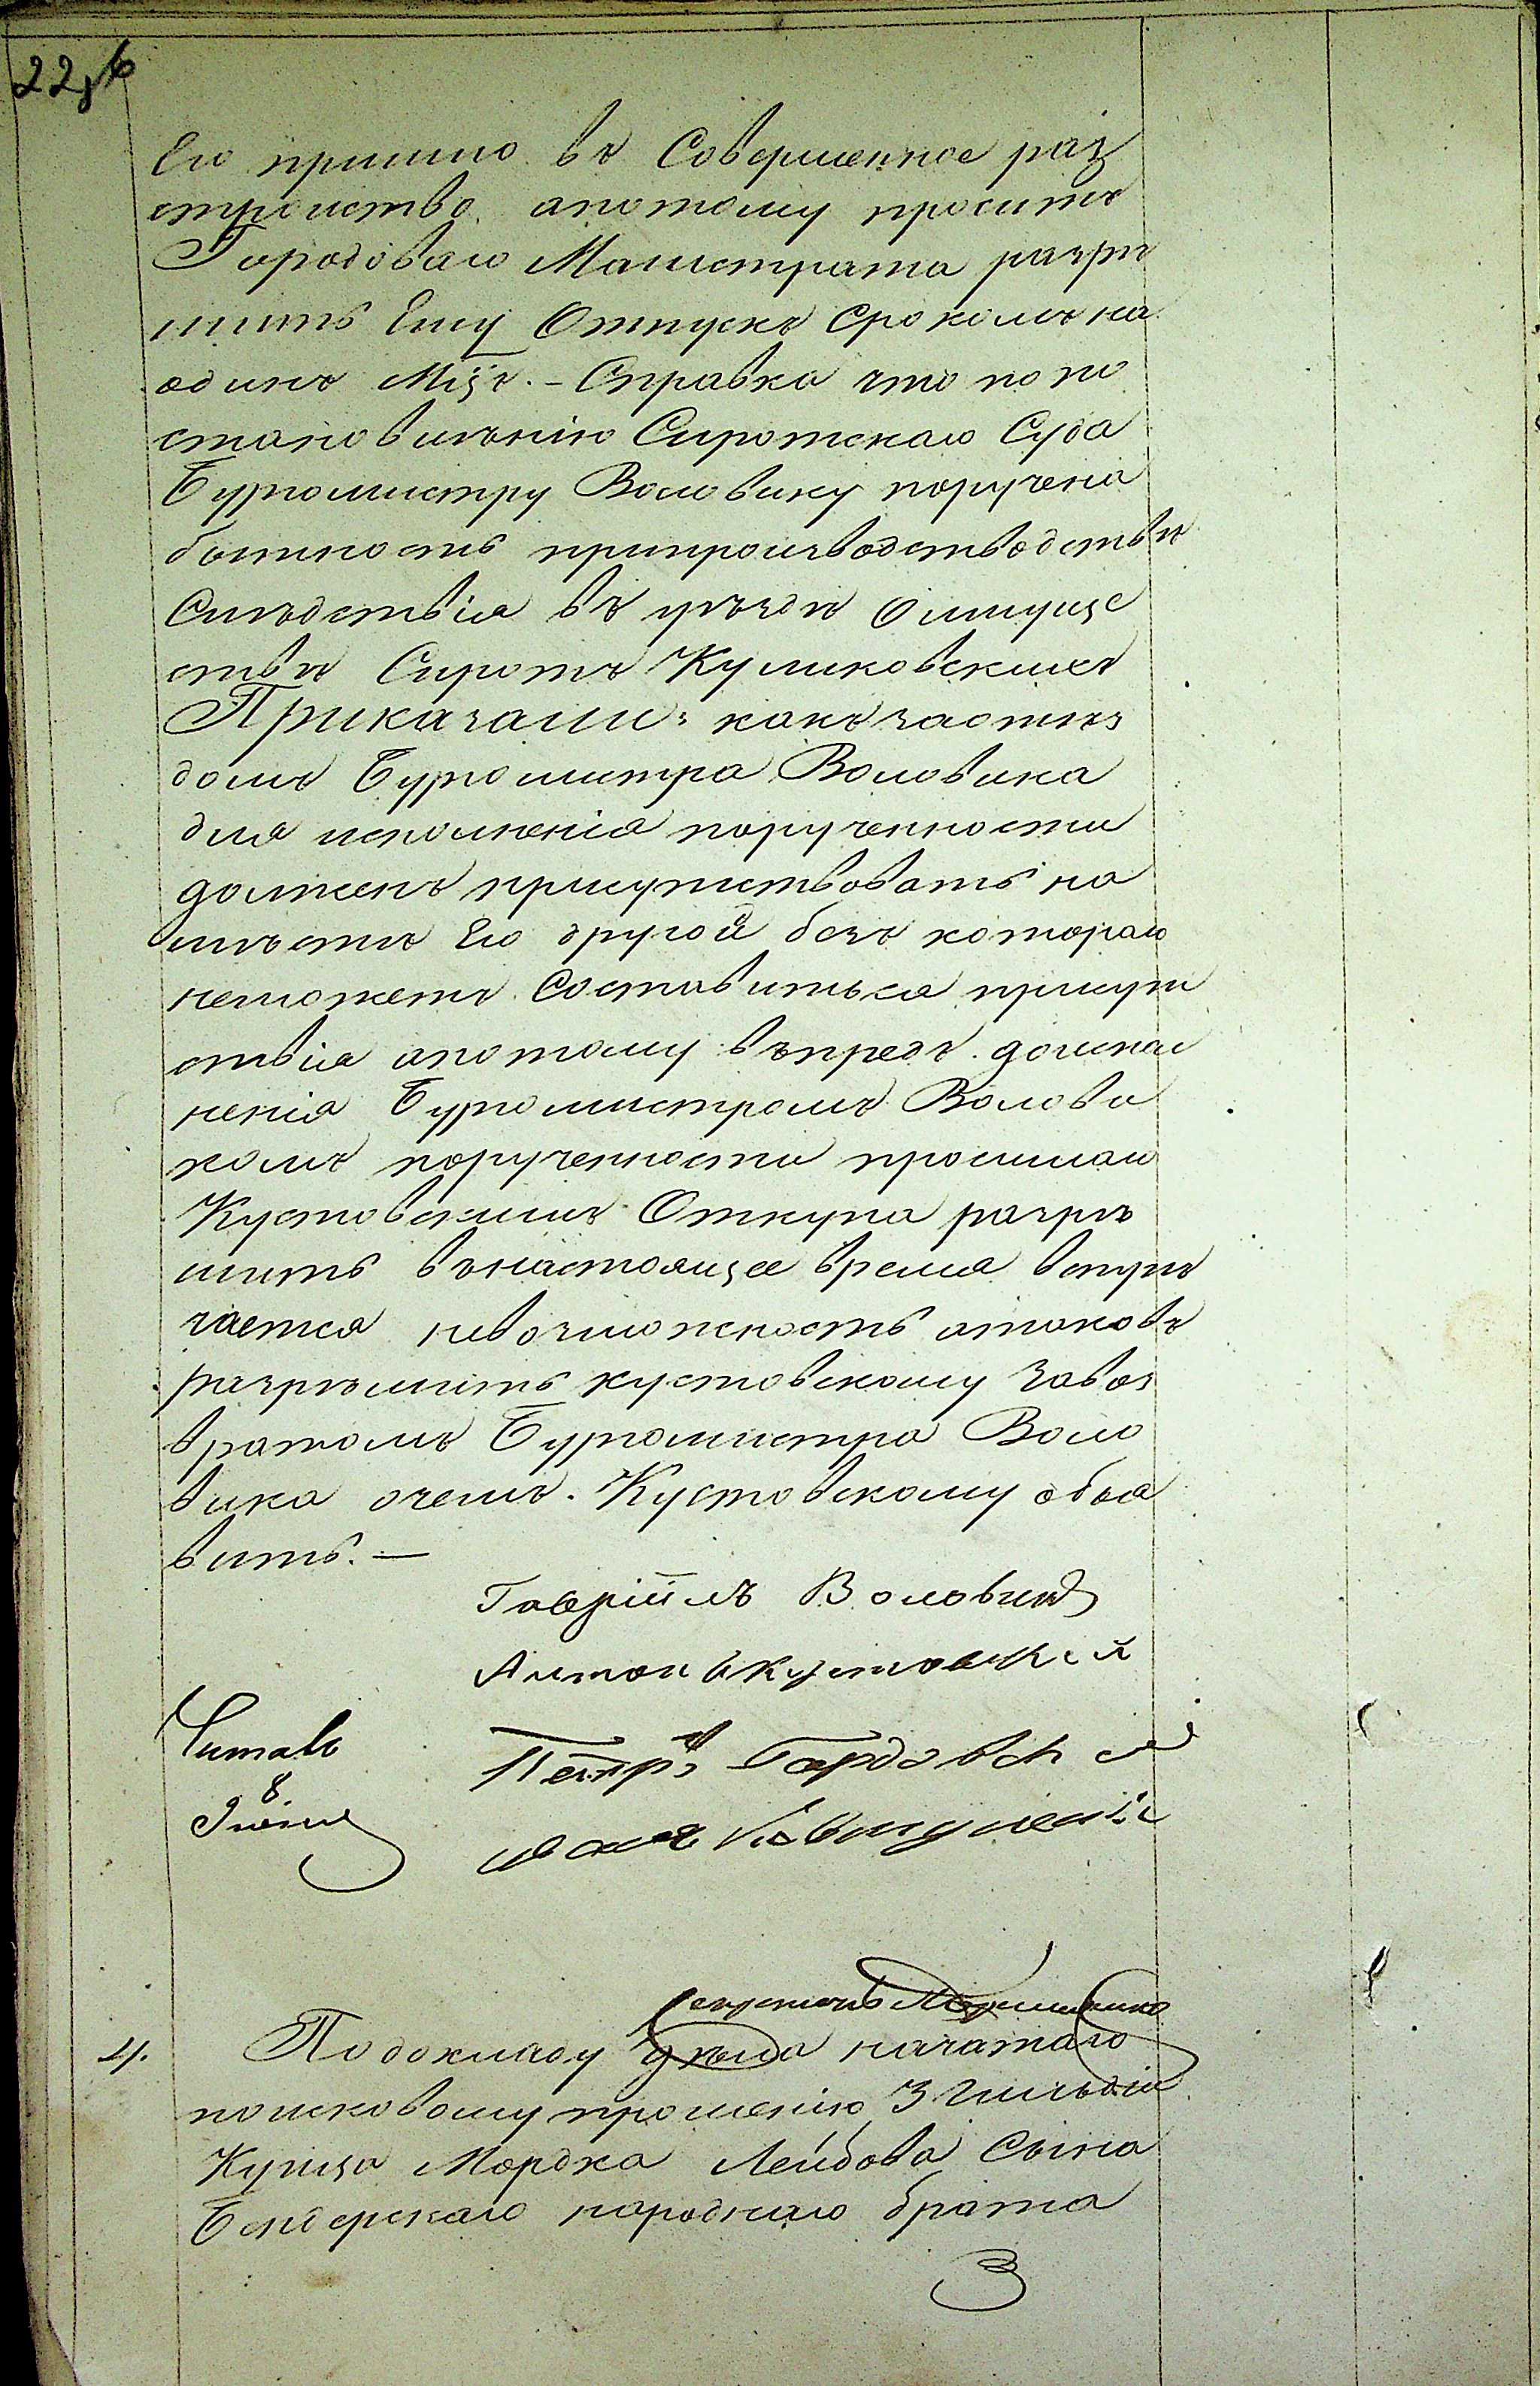 Его пришло въ Совершенное раз
стройство апотому проситъ
Городоваго Магистрата разрѣ
шить Ему Отпускъ Срокомъ на
одинъ Мцъ. – Справка что по по
становленію Сиротскаго Суда
Бургомистру Воловику поручена
бытность припроизводстводствѣ
Слѣдствія въ уѣздѣ Оимуще
ствѣ Сиротъ Куликовскихъ
Приказали: какъ заотѣз
домъ Бургомистра Воловика
для исполненія порученности
долженъ присутствовать на
мѣстѣ Его другой безъ котораго
неможетъ Составиться присут
ствія апотому въпредъ доиспол
ненія Бургомистромъ Волови
комъ порученности просимаго
Кустовскимъ Отпуска разрѣ
шить внастоящее время встрѣ
чается невозможность атаковъ
разрѣшить кустовскому Завоз
вратомъ Бургомистра Воло
вика очемъ Кустовскому объя
вить. —
Гавріилъ Воловикъ
Антонъ Кустовскій
Читалъ
8
Іюня
Петръ Гордовскій
Секретарь
4. Подокладу дѣла начатаго
поисковому прошенію 3 Гильдіи
Купца Мордка Лейбова Сына
Бендерскаго народнаго брата
3